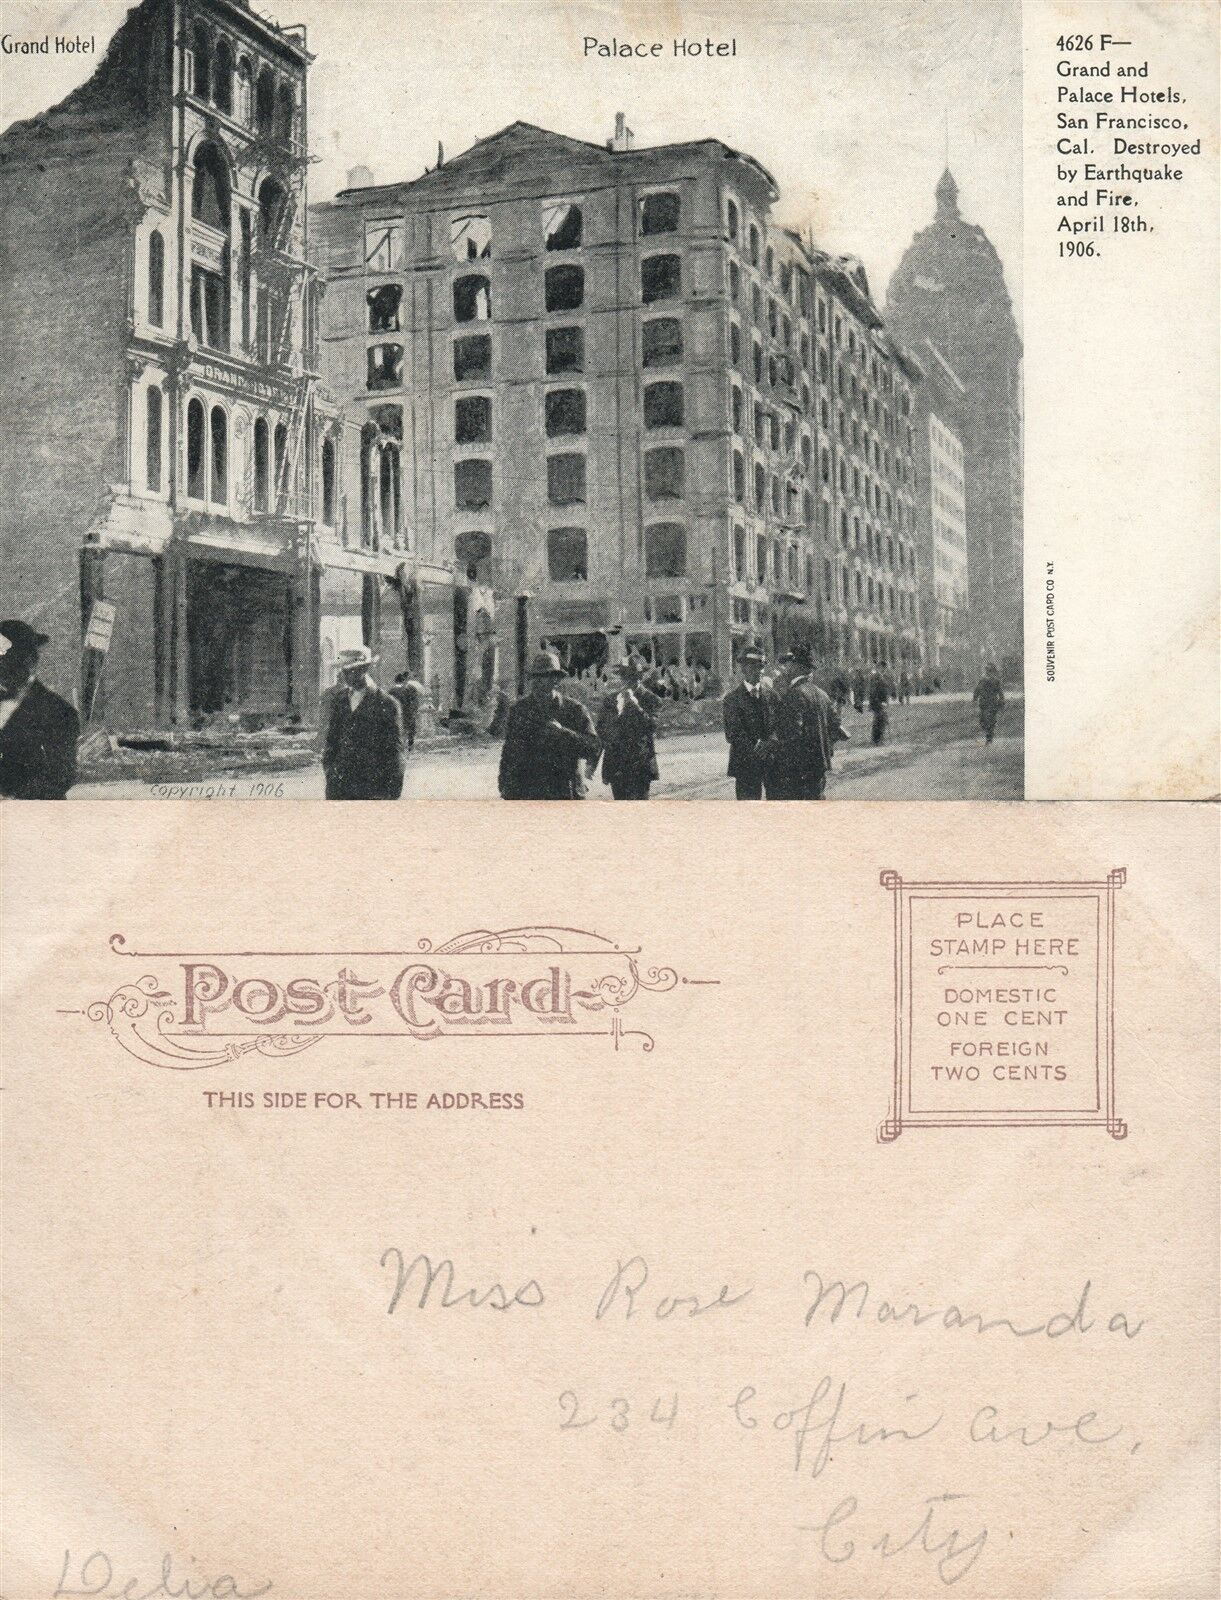 Grand Hotel
Palace Hotel
4626 F—
Grand and
Palace Hotels,
San Francisco,
Cal. Destroyed
by Earthquake
and Fire,
April 18th,
1906.
SOUVENIR POST CARD CO N.Y.
GRAND
Copyright 1906
Post Card
THIS SIDE FOR THE ADDRESS
PLACE
STAMP HERE
DOMESTIC
ONE CENT
FOREIGN
TWO CENTS
Miss Rose Maranda
234 Coffin Ave,
City.
Delia